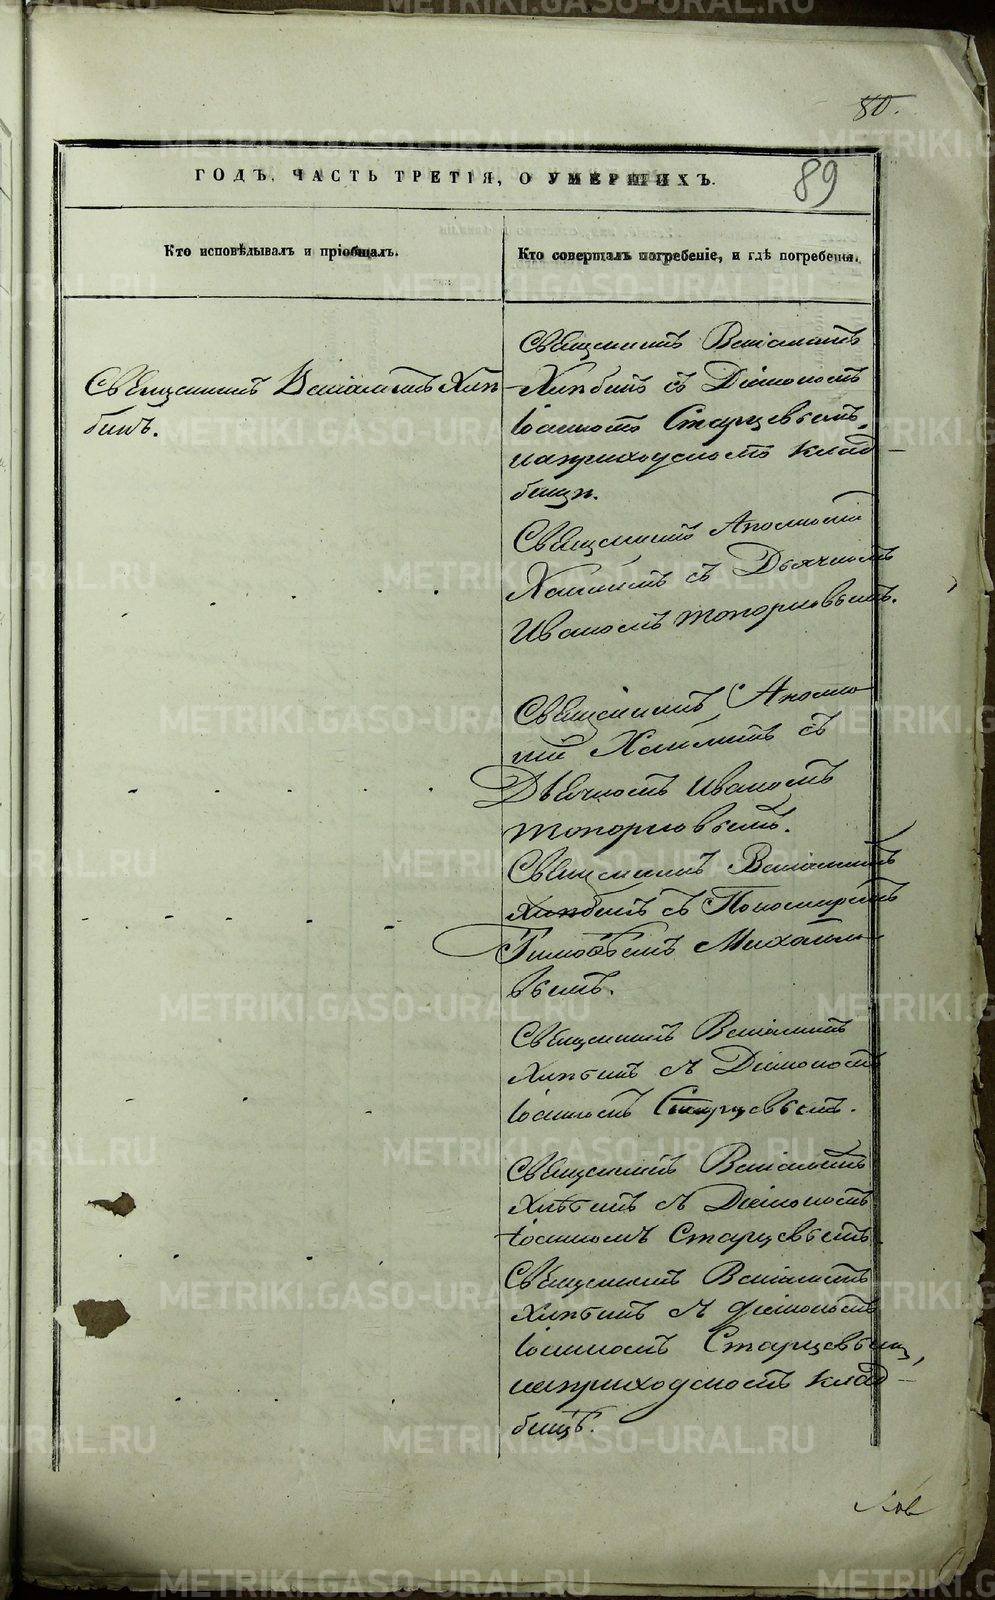 80.
89
ГОДЪ, ЧАСТЬ ТРЕТІЯ, О УМЕРШИХЪ.
Кто исповѣдывалъ и пріобщалъ.
Кто совершалъ погребеніе, и гдѣ погребены.
Священникъ Веніаминъ Хлѣ-
бинъ.
Священникъ Веніаминъ
Хлѣбинъ съ Діакономъ
Іоанномъ Старцевымъ,
на приходскомъ клад-
бищѣ.
Священникъ
съ Дьячкомъ
Иваномъ Топорковымъ.
Священникъ
съ
Дьячкомъ Иваномъ
Топорковымъ.
Священникъ Веніаминъ
Хлѣбинъ съ Пономаремъ
Тимофѣемъ Михайло-
вымъ.
Священникъ Веніаминъ
Хлѣбинъ съ Діакономъ
Іоанномъ Старцевымъ.
Священникъ Веніаминъ
Хлѣбинъ съ Діакономъ
Іоанномъ Старцевымъ.
Священникъ Веніаминъ
Хлѣбинъ съ Діакономъ
Іоанномъ Старцевымъ,
на приходскомъ клад-
бищѣ.
METRIKI.GASO-URAL.RU